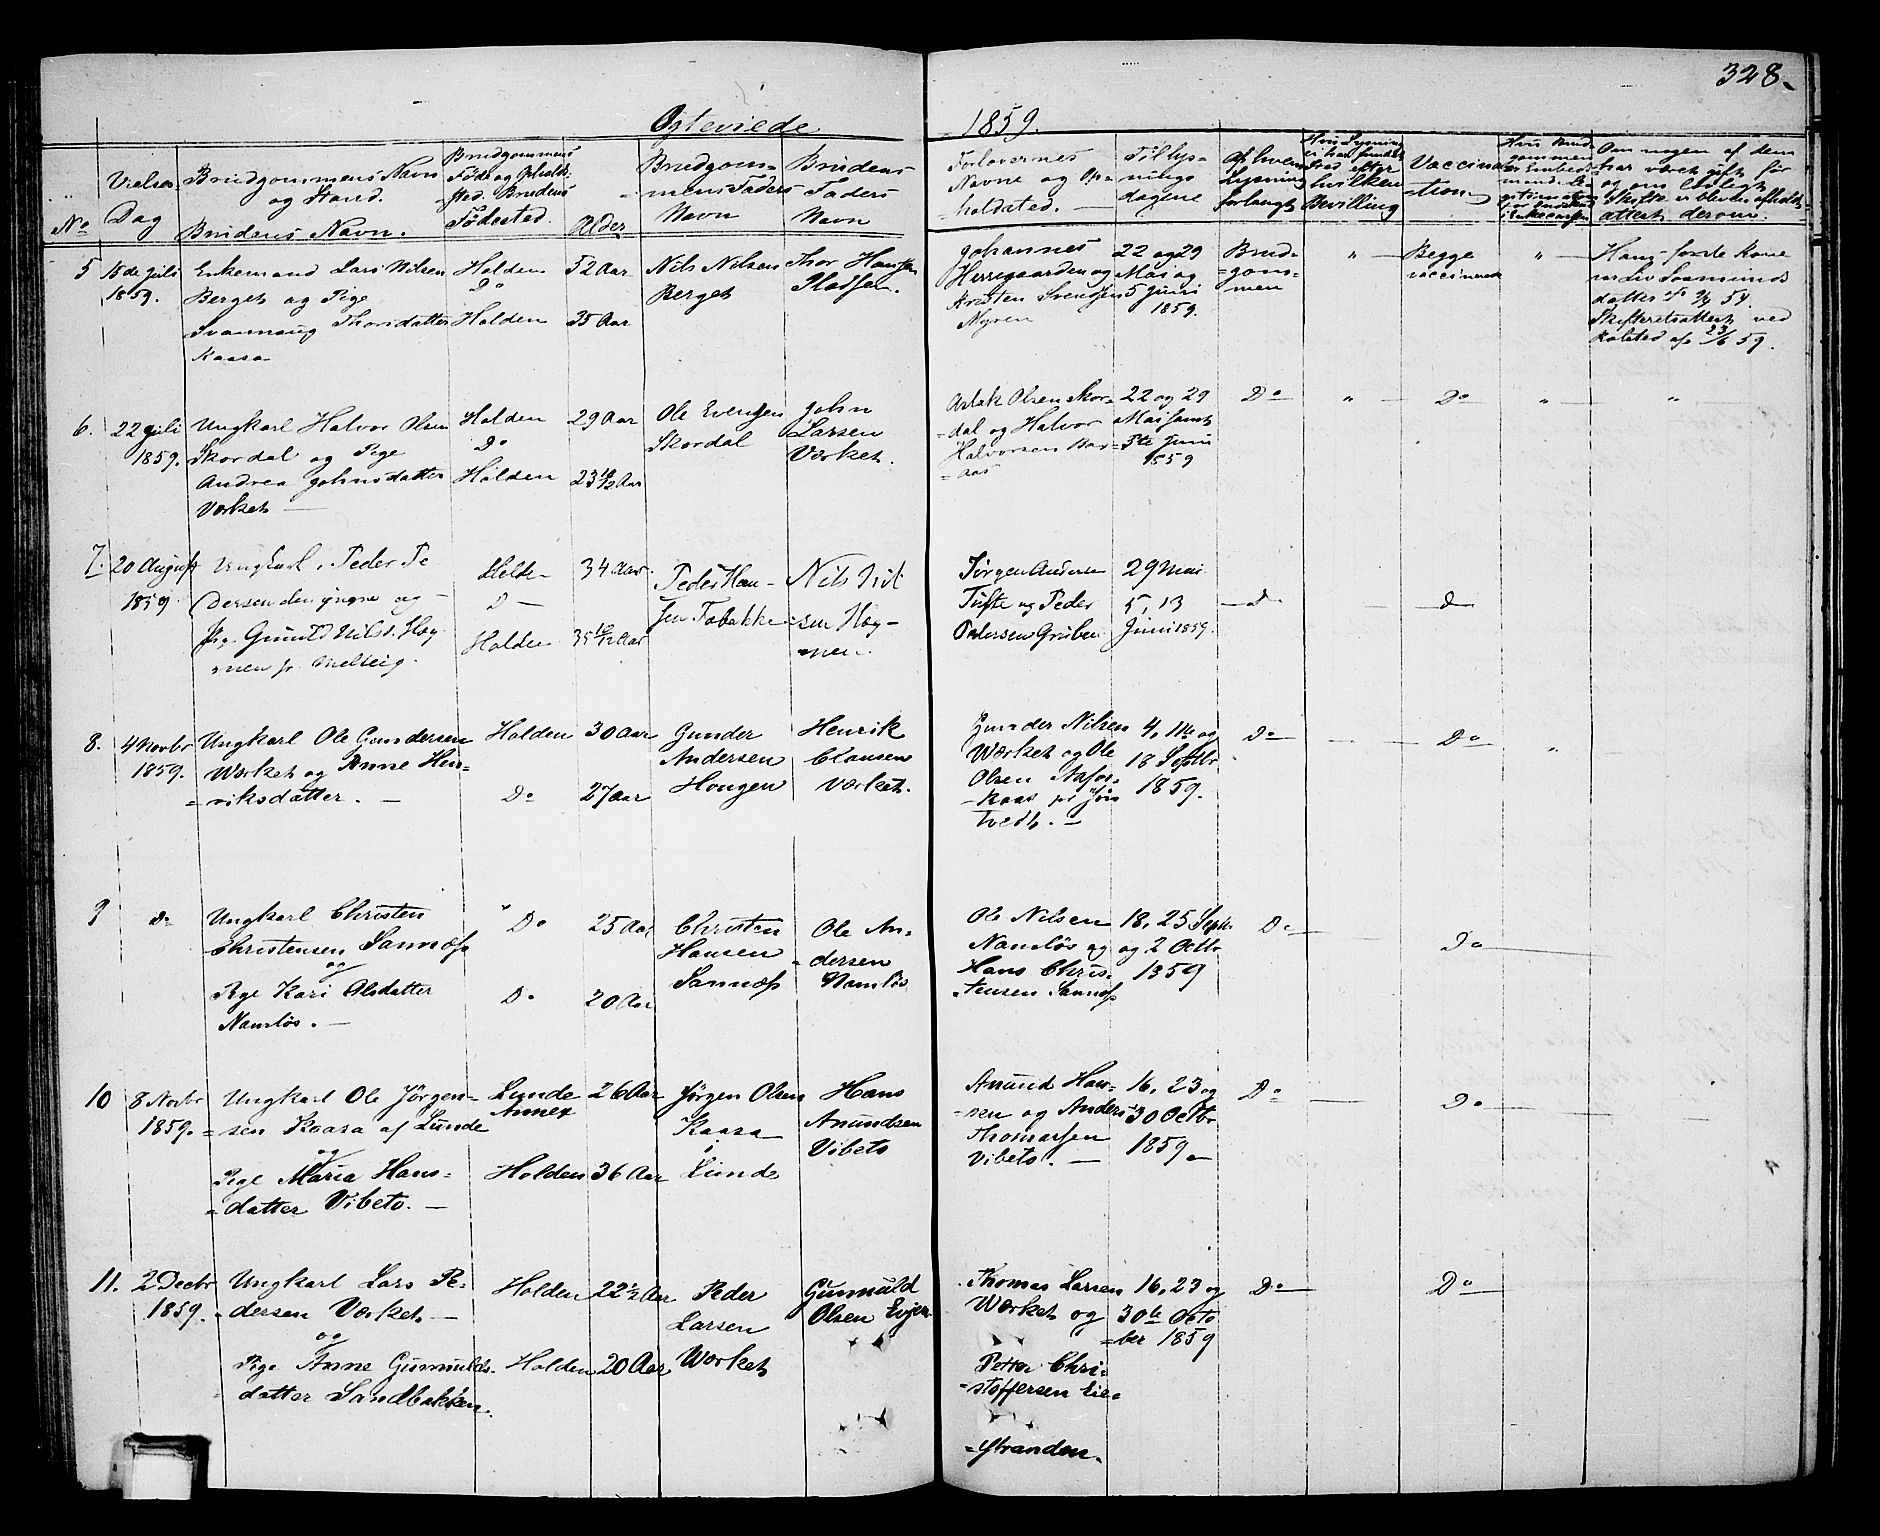 328.
Ogteviede
1859.
No
Vielses
Dag
Brudgommens Navn
og Stand.
Brudens Navn.
Brudgommens
Føde og Opholds-
sted. Brudens
Fødested.
Alder
Brudgom-
mens Faders
Navn
Brudens
Faders
Navn
Forlovernes
Navne og Op-
holdsted.
Tillys-
nings
dagene
Af hvem
Lysning
forlangt
Hvis Lysning
ei har fundet
Sted efter
hvilken
Bevilling
Vaccina
-tion.
Om nogen af dem
har været gift før
og om lovligt
Skifte er bleven afholdt
attest derom.
5
15de Juli
1859.
Enkemand Lars Nilsen
Berget og Pige
Svannaug Thorsdatter
Kaasa
Holden
Do
Holden
52 Aar
35 Aar
Nils Nilsen
Berget
Thor Hansen
Pladsen.
Johannes
Herregaarden og
Aresten Svendsen
Myren
22 og 29
Mai og
5 Juni
1859.
Brud-
=gom-
=men
"
Begge
vaccinerede
"
Hans forste Kone
datter
54.
Skifteretsattest ved
af 23/6 59.
6.
22 Juli
1859.
Ungkarl Halvor Olsen
Skordal og Pige
Andrea Johnsdatter
Værket
Holden
Do
Holden
29 Aar
23 10/12 Aar
Ole Evensen
Skordal
John
Larsen
Værket.
Aslak Olsen Skor-
=dal og Halvor
Halvorsen Bar-
=aas
22 og 29
Mai samt
5te Juni
1859
Do
"
Do
"
"
7.
20 August
1859.
Ungkarl, Peder Pe
dersen den yngre og
Pig. Gunild Nilsd. Høg-
=men pr. Melteig.
D
Holden
34 Aar
35 10/12 Aar
Peder Han-
sen Tobakke
Nils Nil
=sen Høg-
men.
Jørgen Andersen
Tufte og Peder
Pedersen Gruben
29 Mai
5, 13
Juni 1859.
D
D
8.
4 Novbr
1859.
Ungkarl Ole Gundersen
Værket og Anne Hen-
=riksdatter.
Holden
Do
30 Aar
27 Aar
Gunder
Andersen
Hougen
Henrik
Clausen
Værket.
Gunder Nilsen
Værket og Ole
Olsen Aafos-
-kaas pr Jøn
tvedt.
4, 11te og
18 Septbr
1859.
Do
Do
"
9
Do
Ungkarl Christen
Christensen Sannæss
og
Pige Kari Olsdatter
Namløs.
Do
Do
25 Aar
20 Aar
Christen
Hansen
Sannæss
Ole An-
dersen
Namløs
Ole Nilsen
Namløs og
Hans Chris-
-tensen Sannæss
18, 25 Septr
og 2 Octbr
1859
Do
Do
10
8 Novbr
1859.
Ungkarl Ole Jørgen-
=sen Kaasa af Lunde
og
Pige Maria Hans-
=datter Vibeto.
Lunde
Annex
Holden
26 Aar
36 Aar
Jørgen Olsen
Kaasa
i
Lunde
Hans
Anundsen
Vibeto
Anund Han-
=sen og Anders
Thomassen
Vibeto.
16, 23 og
30 Octbr
1859
Do
Do
11.
2 Decbr
1859.
Ungkarl Lars Pe-
=dersen Værket
og
Pige Anne Gunnulds-
datter Sandbakken.
Holden
Holden
22 1/2 Aar
20 Aar
Peder
Larsen
Værket
Gunnuld
Olsen Evjen
Thomas Larsen
Værket og
Petter Chri-
=stoffersen Eie-
=stranden.
16, 23 og
30te Octo
=ber 1859
Do
Do